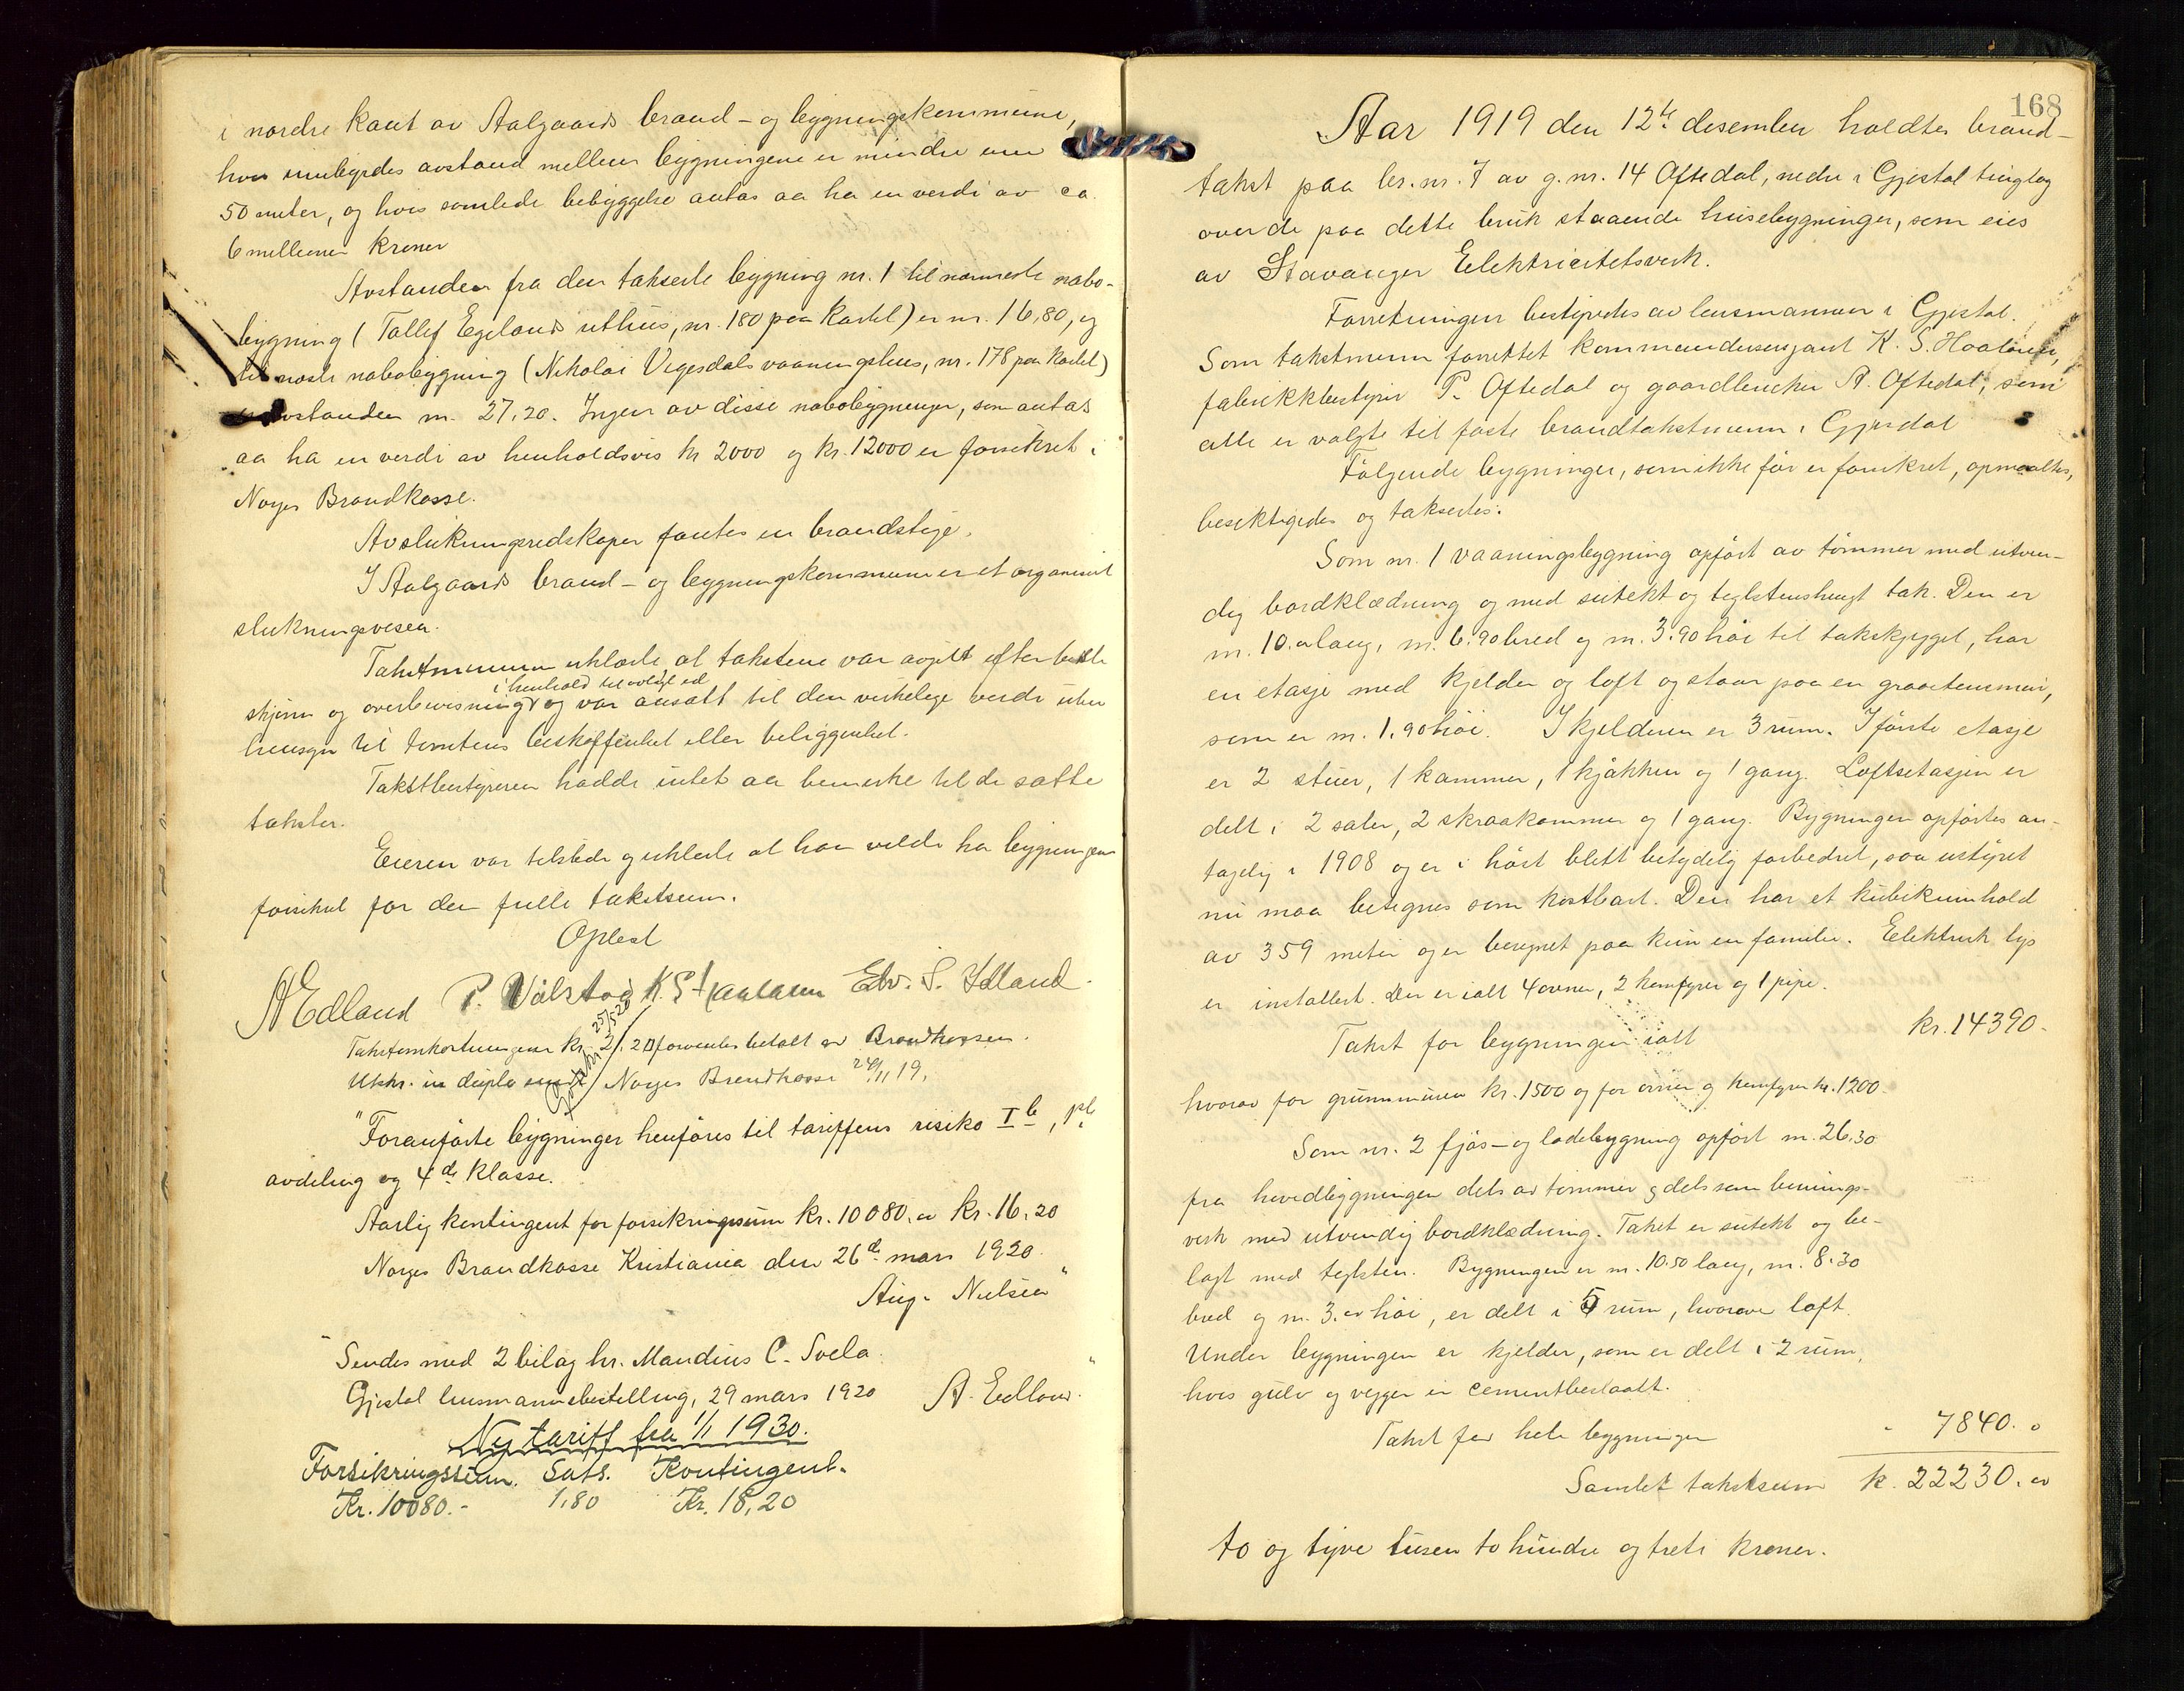 i nordre kant av Aalgaards brand- og bygningskommune,
hvis innbyrdes avstand mellem bygningene er mindre enn
50 meter, og hvis samlede bebyggelse antas aa ha en verdi av ca.
6 millioner kroner
Avstanden fra den takserte bygning nr. 1 til nærmeste nabo-
bygning (Tollef Egelands uthus, nr. 180 paa kartet) er m. 16,80, og
til næste nabobygning (Nikolai Vegesdals vaaningshus, nr. 178 paa kartet)
avstanden m. 27,20. Ingen av disse nabobygninger, som antas
aa ha en verdi av henholdsvis kr 2000 og kr. 12000 er forsikret i
Norges Brandkasse.
Avslukningsredskaper fantes en brandstige.
I Aalgaards brand- og bygningskommune er et organisert
slukningsvesen.
Takstmennene erklærte, at takstene var avgitt efter beste
i henhold til avlagt ed
skjønn og overbevisning og var ansatt til den virkelige verdi uten
hensyn til tomtens beskaffenhet eller beliggenhet.
Takstbestyreren hadde intet aa bemerke til de satte
takster.
Eieren var tilstede og erklærte at han vilde ha bygningen
forsikret for den fulle takstsum.
Oplest
A Edland P. Valstad K. S. Haaland Edv. S. Idland
Takstomkostningene kr. 21.20 forventes betalt av Brandkassen.
25/5 20
Utskr. in duplo sendt Norges Brandkasse 24/11 19.
"Foranførte bygninger henføres til tariffens risiko I b, pl.
avdeling og 4de klasse.
Aarlig kontingent for forsikringssum kr. 10080. er kr. 16,20
Norges Brandkasse Kristiania den 26de mars 1920
Aug. Nielsen"
"Sendes med 2 bilag hr. Mandius C. Svela
Gjestal lensmannsbestilling, 29 mars 1920 A. Edland"
Ny tariff fra 1/1 1930.
Forsikringssum. Sats. Kontingent.
Kr. 10080.- 1,80 Kr. 18,20
168
Aar 1919 den 12te desember holdtes brand-
takst paa br. nr. 7 av g. nr. 14 Oftedal, nedre i Gjestal tinglag
over de paa dette bruk staaende husebygninger, som eies
av Stavanger Elektricitetsverk.
Forretningen bestyredes av lensmannen i Gjestal.
Som takstmenn forrettet kommandersersjant K. S. Haaland,
fabrikkbestyrer P. Oftedal og gaardbruker A. Oftedal, som
alle er valgte til faste brandtakstmenn i Gjesdal
Følgende bygninger, som ikke før er forsikret, opmaaltes,
besiktigedes og taksertes:
Som nr. 1 vaaningsbygning opført av tømmer med utven-
dig bordklædning og med sutekt og teglstenshengt tak. Den er
m. 10.00 lang, m. 6.90 bred og m. 3.90 høi til takskjegget, har
en etasje med kjelder og loft og staar paa en graastensmur,
som er m. 1.90 høi. I kjelderen er 3 rum. I første etasje
er 2 stuer, 1 kammer, 1 kjøkken og 1 gang. Loftsetasjen er
delt i 2 saler, 2 skraakammer og 1 gang. Bygningen opførtes an-
tagelig i 1908 og er i høst blitt betydelig forbedret, saa utstyret
nu maa betegnes som kostbart. Den har et kubikinnhold
av 359 meter og er beregnet paa kun en familie. Elektrisk lys
er installert. Der er ialt 4 ovner, 2 komfyrer og 1 pipe.
Takst for bygningen ialt kr. 14390.-
hvorav for grunnmuren kr. 1500 og for ovner og komfyrer kr. 1200.
Som nr. 2 fjøs- og ladebygning opført m. 26.30
fra hovedbygningen dels av tømmer og dels som bennings-
verk med utvendig bordklædning. Taket er sutekt og be-
lagt med teglsten. Bygningen er m. 10.50 lang, m. 8.30
bred og m. 3.00 høi, er delt i 5 rum, hvorover loft.
Under bygningen er kjelder, som er delt i 2 rum,
hvis gulv og vegger er cementbeslaatt.
Takst for hele bygningen " 7840.0
Samlet takstsum k. 22230.00
to og tyve tusen to hundre og treti kroner.